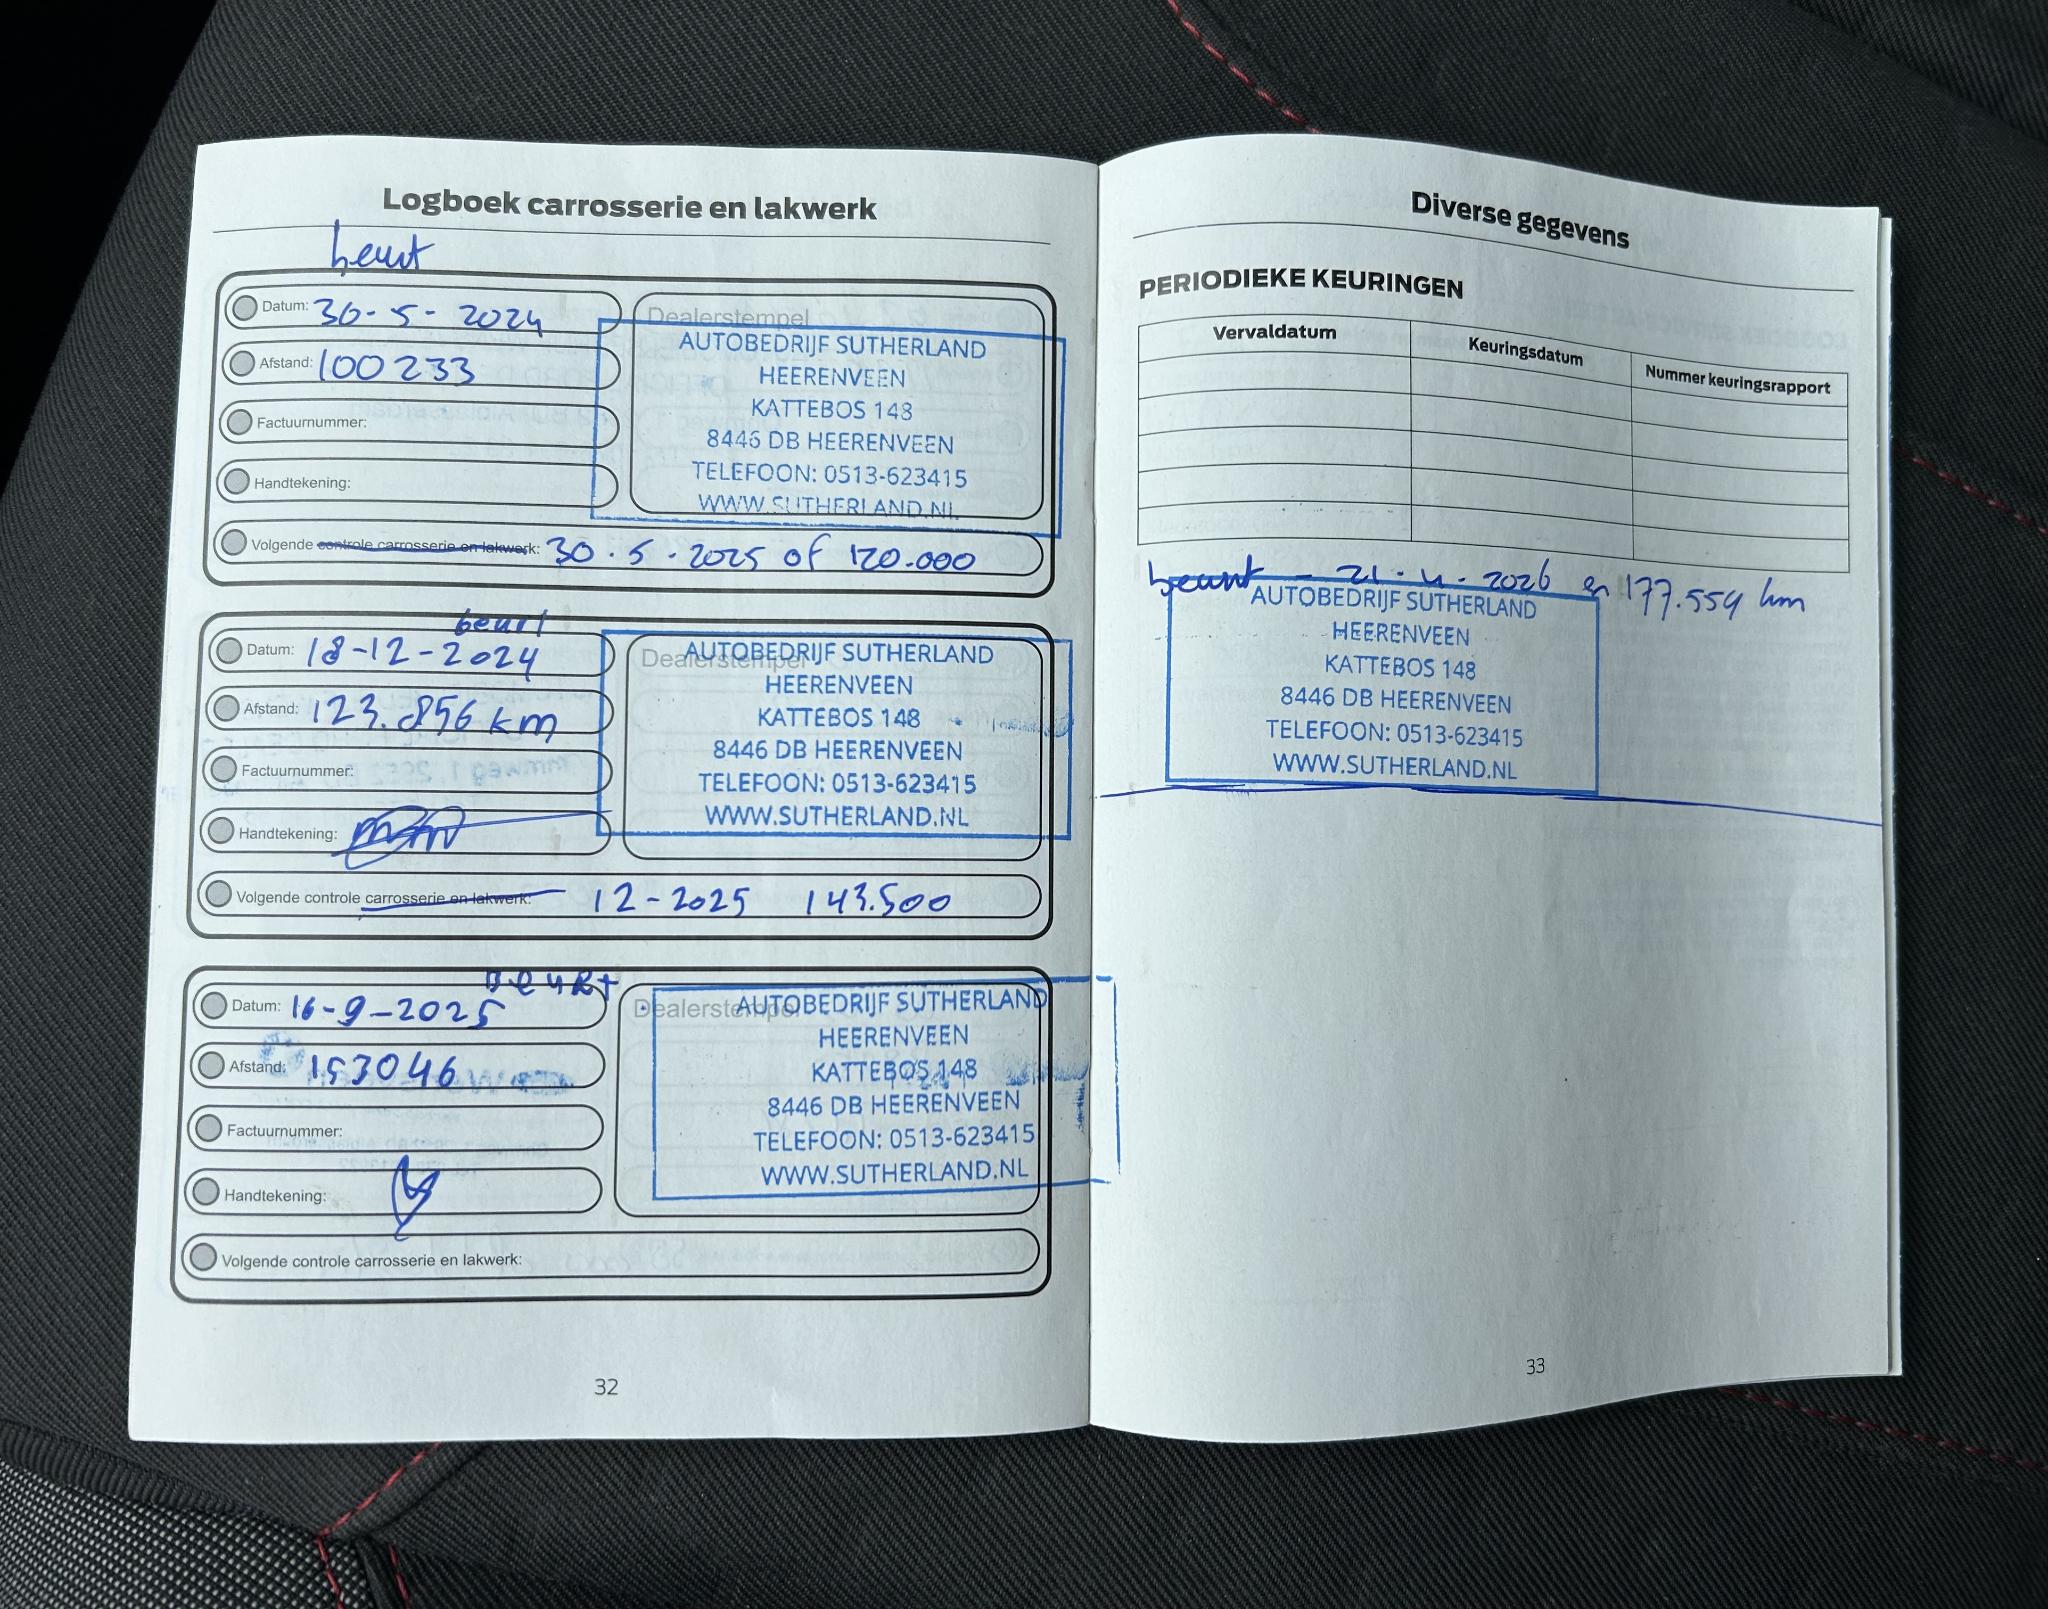 Logboek carrosserie en lakwerk
beurt
Datum: 30-5-2024
Afstand: 100233
Factuurnummer:
Handtekening:
Dealerstempel
AUTOBEDRIJF SUTHERLAND
HEERENVEEN
KATTEBOS 148
8446 DB HEERENVEEN
TELEFOON: 0513-623415
WWW.SUTHERLAND.NL
Volgende controle carrosserie en lakwerk: 30.5.2025 of 120.000
beurt
Datum: 18-12-2024
Afstand: 123.856 km
Factuurnummer:
Handtekening:
Dealerstempel
AUTOBEDRIJF SUTHERLAND
HEERENVEEN
KATTEBOS 148
8446 DB HEERENVEEN
TELEFOON: 0513-623415
WWW.SUTHERLAND.NL
Volgende controle carrosserie en lakwerk: 12-2025 143.500
BEURt
Datum: 16-9-2025
Afstand: 153046
Factuurnummer:
Handtekening:
Dealerstempel
AUTOBEDRIJF SUTHERLAND
HEERENVEEN
KATTEBOS 148
8446 DB HEERENVEEN
TELEFOON: 0513-623415
WWW.SUTHERLAND.NL
Volgende controle carrosserie en lakwerk:
32
Diverse gegevens
PERIODIEKE KEURINGEN
Vervaldatum Keuringsdatum Nummer keuringsrapport
beurt - 21.4.2026 en 177.554 km
AUTOBEDRIJF SUTHERLAND
HEERENVEEN
KATTEBOS 148
8446 DB HEERENVEEN
TELEFOON: 0513-623415
WWW.SUTHERLAND.NL
33